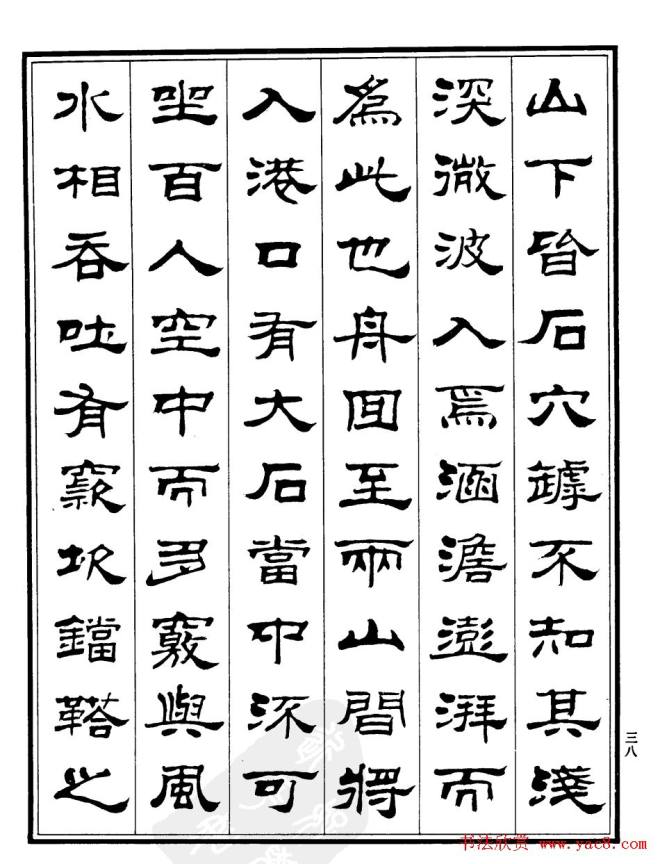 山下皆石穴罅不知其淺
深微波入焉涵澹澎湃而
為此也舟回至兩山間將
入港口有大石當中流可
坐百人空中而多竅與風
水相吞吐有窾坎鏜鞳之
三八
书法欣赏 www.yac8.com